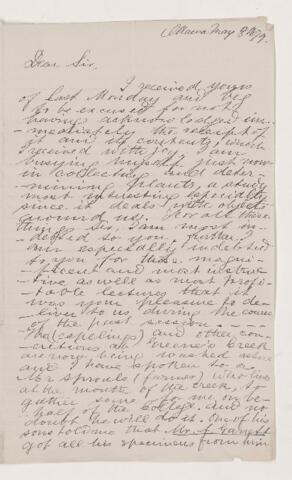 Ottawa May 8 1879.
Dear Sir,
I received yours
of last Monday and beg
to be excused for not
having acknowledged im-
-mediately the receipt of
it and its contents which
received with joy. I am
busying myself just now
in collecting and deter-
-mining plants, a study
most interesting especially
since it deals with objects
around us. For all these
things Sir, I am most in-
debted to you further I
am especially indebted
to you for those magni-
ficent and most instruc-
tive as well as most profi-
table lectures that it
was your pleasure to de-
liver to us during the course
of the past session.
The (capelings) and other con-
cretions at Greene's Creek
are now being washed ashore
and I have spoken to a
Mr Sproule (farmer) who lives
at the mouth of the creek, to
gather some for me on be-
half of the College and no
doubt he will do it. One of his
sons told me that Mr
got all his specimens from him